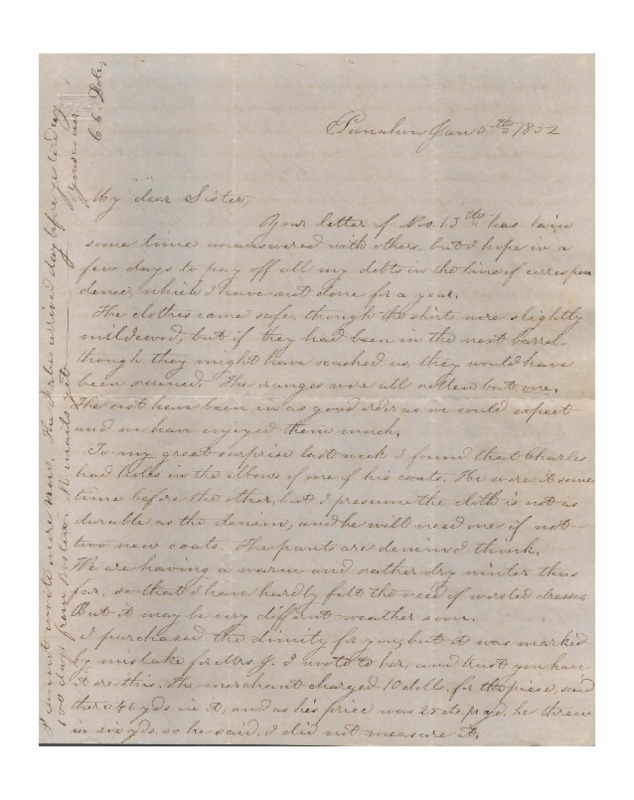 Punahou Jan 5th 1852
My dear Sister,
Your letter of Nov. 13th has lain
some time unanswered with others, but I hope in a
few days to pay off all my debts in the line of correspon
dence, which I have not done for a year.
The clothes came safe, though the shirts were slightly
mildewed, but if they had been in the next barrel
though they might have reached us, they would have
been ruined. The oranges were all rotten but one.
The rest have been in as good order as we could expect
and we have enjoyed them much.
To my great surprise last week I found that Charles
had holes in the elbows of one of his coats. He wore it some
time before the other, but I presume the cloth is not as
durable as the denim, and he will need one if not
two new coats. The pants are denim I think.
We are having a warm and rather dry winter thus
far, so that I have hardly felt the need of worsted dresses
But it may be very different weather soon.
I purchased the dimity for you, but it was marked
by mistake for Mrs G. I wrote to her, and trust you have
it ere this. The merchant charged 10 dolls. for the piece, said
there 46 yds in it, and as his price was 25 cts pr yd. he threw
in six yds. so he said, I did not measure it.
I cannot write more now. The arrived day before yesterday
100 days from Boston. No mails yet
Yours in
C. C. Dole